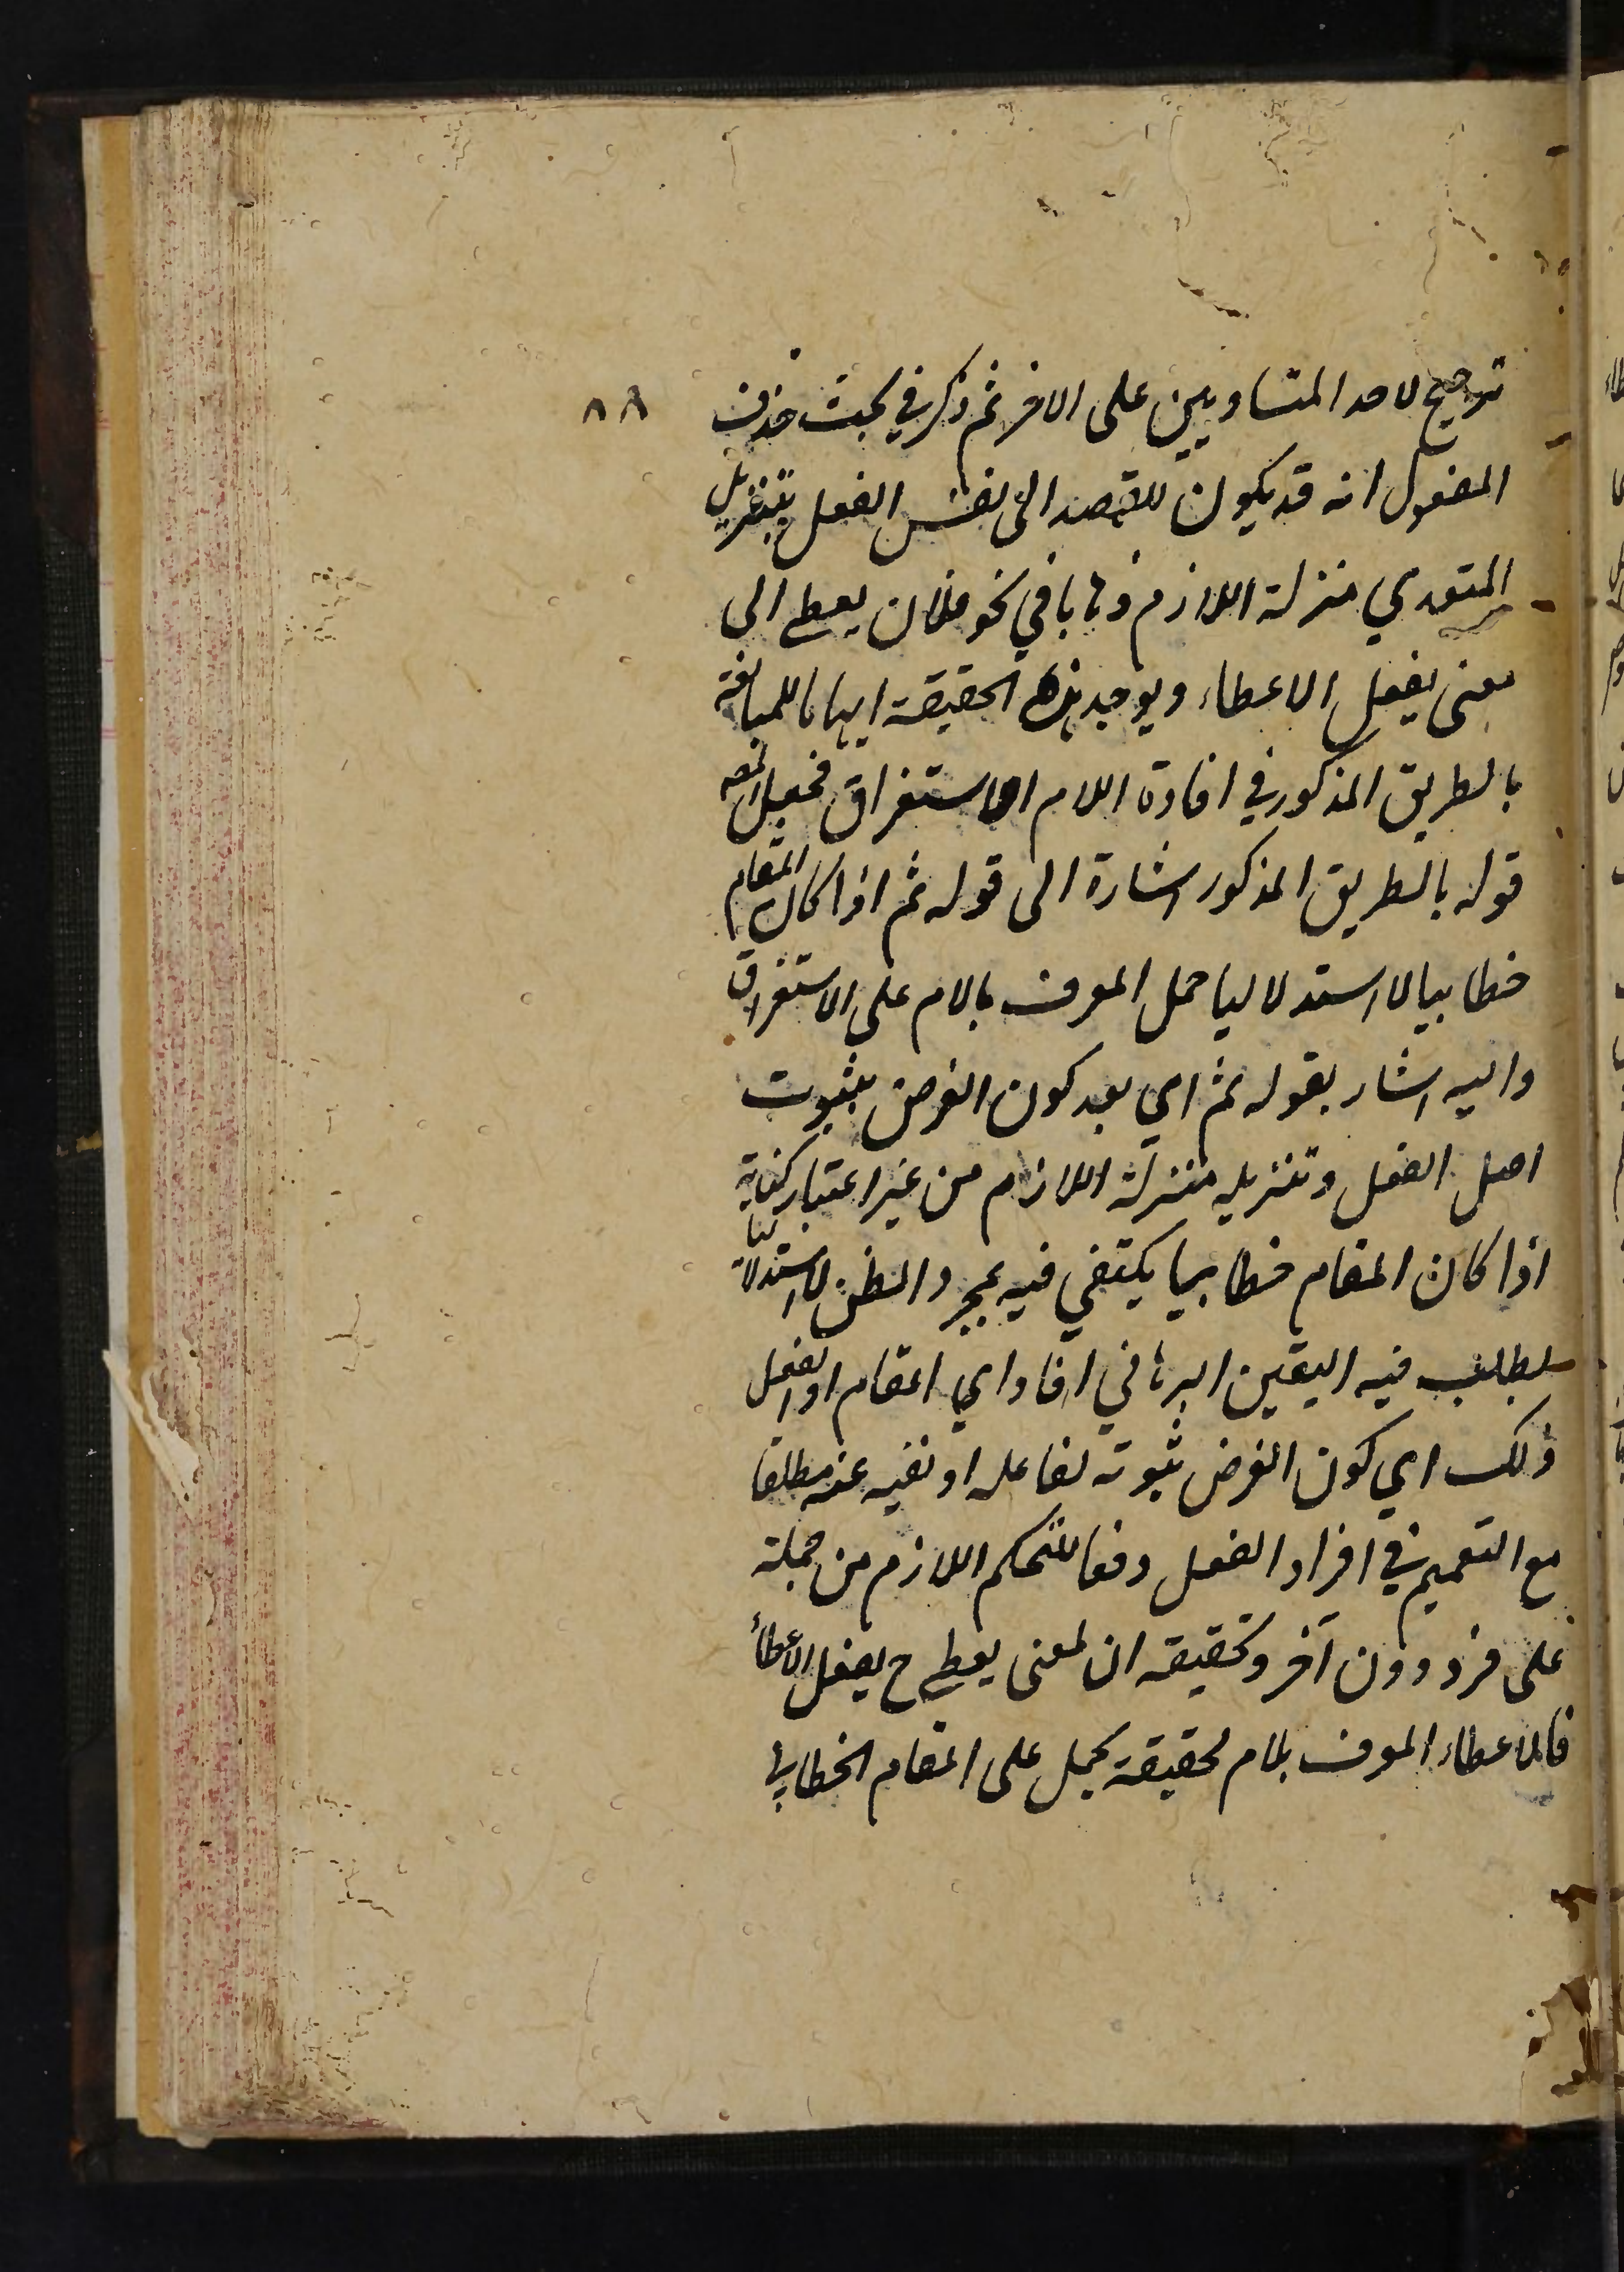 ترجيح لاحد المتساويين على الاخر ثم ذكر في بحث حذف
٨٨
المفعول انه قد يكون للقصد الى نفس الفعل بتنزيل
المتعدي منزلة اللازم ذهابا في نحو فلان يعطي الى
معنى يفعل الاعطاء ويوجد هذه الحقيقة ايهاما للمبالغة
بالطريق المذكور في افادة اللام الاستغراق فجعل المص
قوله بالطريق المذكور اشارة الى قوله ثم اذا كان المقام
خطابيا لا استدلاليا حمل المعرف بالام على الاستغراق
واليه اشار بقوله ثم اي بعد كون الغرض بثبوت
اصل الفعل وتنزيله منزلة اللازم من غير اعتبار كناية
اذا كان المقام خطابيا يكتفي فيه بمجرد الظن لا استدلاليا
يطلب فيه اليقين البرهاني افاد اي المقام او الفعل
ذلك اي كون الغرض ثبوته لفاعله او نفيه عنه مطلقا
مع التعميم في افراد الفعل دفعا للتحكم اللازم من حمله
على فرد دون آخر وتحقيقه ان لمعنى يعطي ح يفعل الاعطاء
فالاعطاء المعرف بلام لحقيقة يحمل على المقام الخطابي